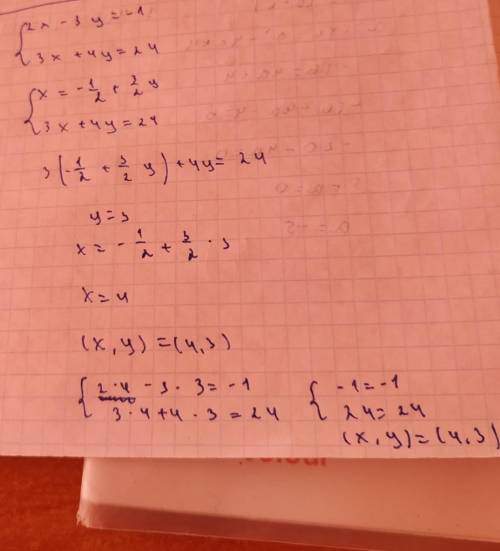 {2x - 3y = -1
3x + 4y = 24
{x = -1/2 + 3/2 y
3x + 4y = 24
3(-1/2 + 3/2 y) + 4y = 24
y = 3
x = -1/2 + 3/2 · 3
x = 4
(x, y) = (4, 3)
{2·4 - 3·3 = -1 {-1 = -1
3·4 + 4·3 = 24 24 = 24
(x, y) = (4, 3)